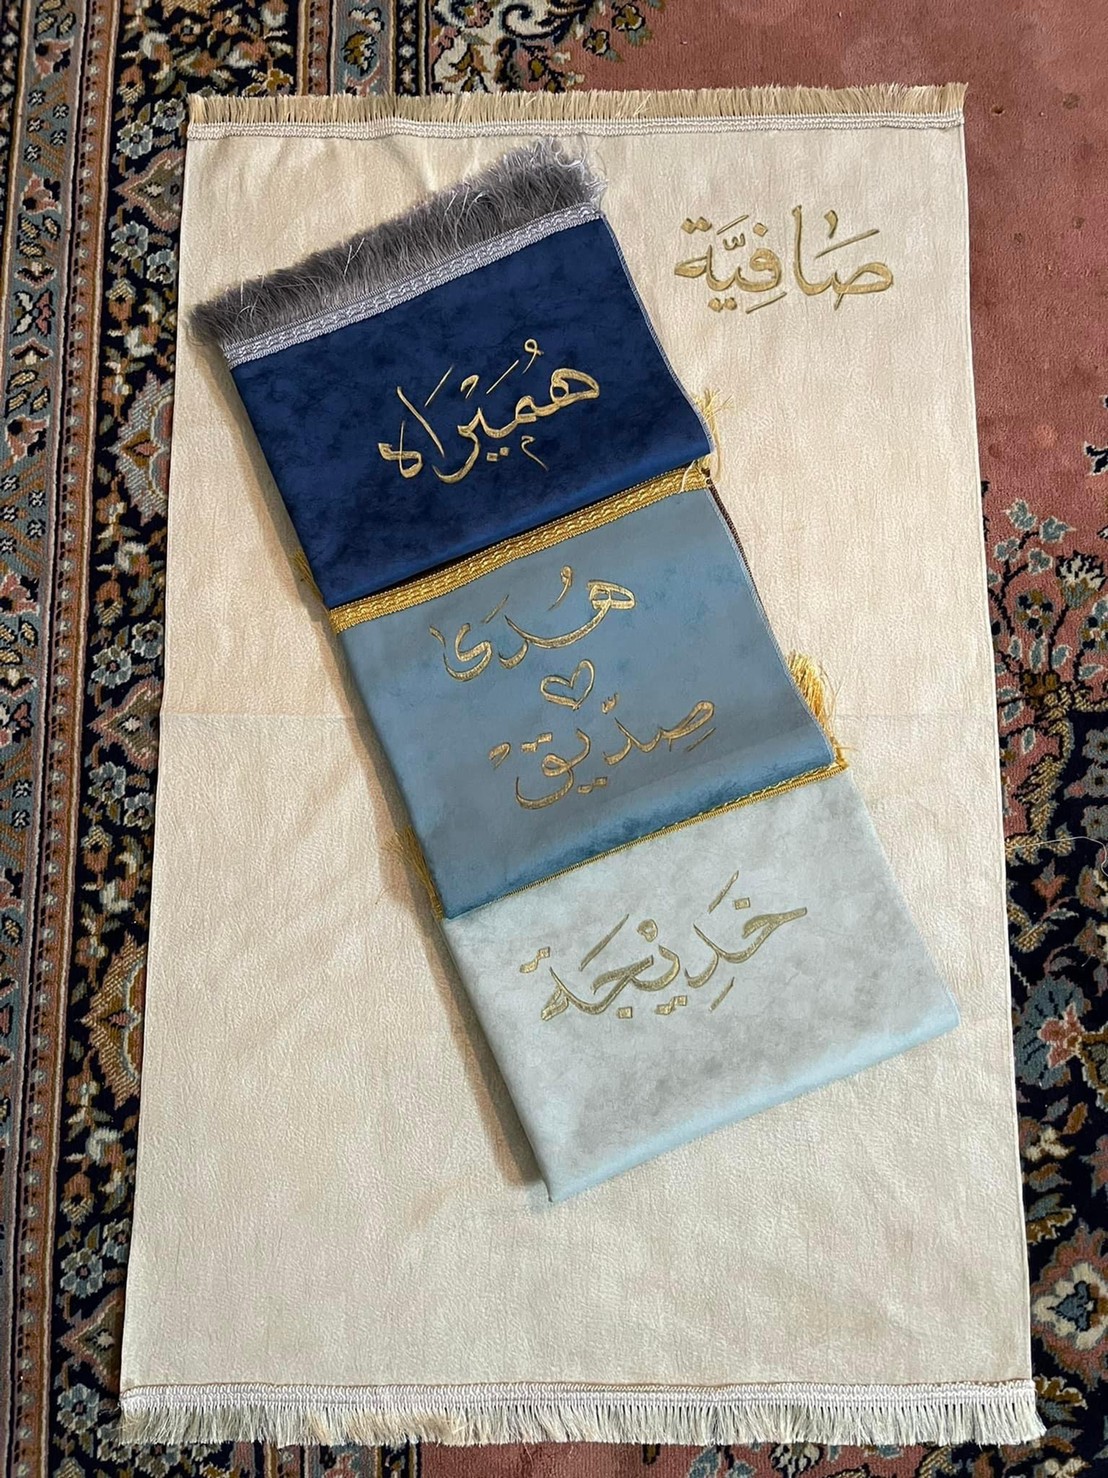 صَافِيَّة
هُمَيْرَاه
هُدَى
صِدِّيق
خَدِيْجَة